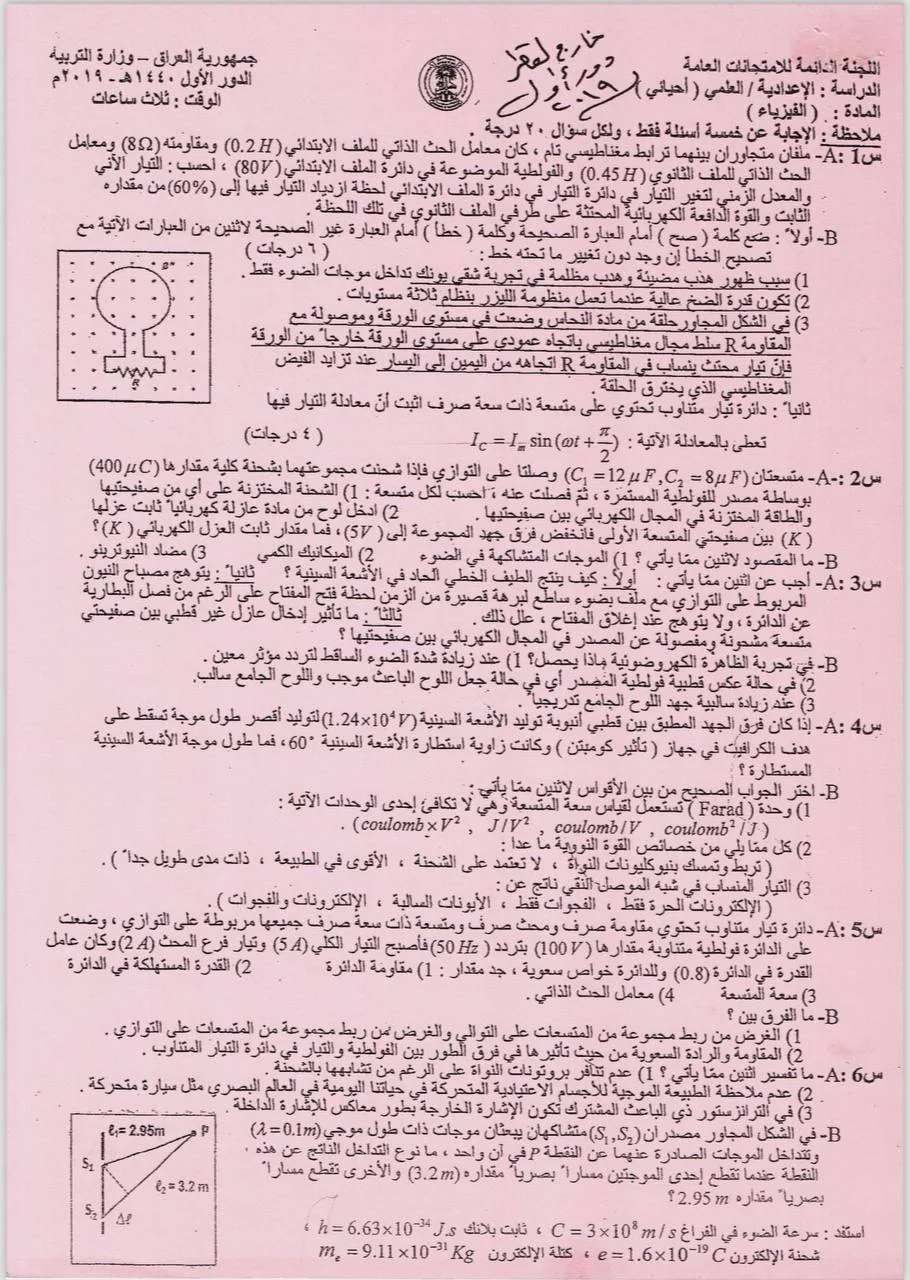 جمهورية العراق – وزارة التربية
الدور الأول ١٤٤٠هـ - ٢٠١٩م
الوقت : ثلاث ساعات
خارج القطر
دور أول
٢٠١٩
اللجنة الدائمة للامتحانات العامة
الدراسة : الإعدادية / العلمي ( أحيائي )
المادة : ( الفيزياء )
ملاحظة : الإجابة عن خمسة أسئلة فقط ، ولكل سؤال ٢٠ درجة .
س1 :A- ملفان متجاوران بينهما ترابط مغناطيسي تام ، كان معامل الحث الذاتي للملف الابتدائي (0.2 H) ومقاومته (8Ω) ومعامل
الحث الذاتي للملف الثانوي (0.45 H) والفولطية الموضوعة في دائرة الملف الابتدائي (80V) ، احسب : التيار الآني
والمعدل الزمني لتغير التيار في دائرة التيار في دائرة الملف الابتدائي لحظة ازدياد التيار فيها إلى (60%) من مقداره
الثابت والقوة الدافعة الكهربائية المحتثة على طرفي الملف الثانوي في تلك اللحظة .
B- أولاً : ضع كلمة ( صح ) أمام العبارة الصحيحة وكلمة ( خطأ ) أمام العبارة غير الصحيحة لاثنتين من العبارات الآتية مع
تصحيح الخطأ إن وجد دون تغيير ما تحته خط : ( ٦ درجات )
1) سبب ظهور هدب مضيئة وهدب مظلمة في تجربة شقي يونك تداخل موجات الضوء فقط .
2) تكون قدرة الضخ عالية عندما تعمل منظومة الليزر بنظام ثلاثة مستويات .
3) في الشكل المجاور حلقة من مادة النحاس وضعت في مستوى الورقة وموصولة مع
المقاومة R سلط مجال مغناطيسي باتجاه عمودي على مستوى الورقة خارجاً من الورقة
فإنّ تيار محتث ينساب في المقاومة R اتجاهه من اليمين إلى اليسار عند تزايد الفيض
المغناطيسي الذي يخترق الحلقة .
R
ثانياً : دائرة تيار متناوب تحتوي على متسعة ذات سعة صرف اثبت أنّ معادلة التيار فيها
تعطى بالمعادلة الآتية : I_C = I_m sin(ωt + π/2) ( ٤ درجات)
س2 :-A- متسعتان (C₁ = 12μF , C₂ = 8μF) وصلتا على التوازي فإذا شحنت مجموعتهما بشحنة كلية مقدارها (400 μC)
بوساطة مصدر للفولطية المستمرة ، ثمّ فصلت عنه ، احسب لكل متسعة : 1) الشحنة المختزنة على أي من صفيحتيها
والطاقة المختزنة في المجال الكهربائي بين صفيحتيها . 2) ادخل لوح من مادة عازلة كهربائياً ثابت عزلها
(K) بين صفيحتي المتسعة الأولى فانخفض فرق جهد المجموعة إلى (5V) ، فما مقدار ثابت العزل الكهربائي (K) ؟
B- ما المقصود لاثنتين ممّا يأتي ؟ 1) الموجات المتشاكهة في الضوء 2) الميكانيك الكمي 3) مضاد النيوترينو .
س3 :A- أجب عن اثنين ممّا يأتي : أولاً : كيف ينتج الطيف الخطي الحاد في الأشعة السينية ؟ ثانياً : يتوهج مصباح النيون
المربوط على التوازي مع ملف بضوء ساطع لبرهة قصيرة من الزمن لحظة فتح المفتاح على الرغم من فصل البطارية
عن الدائرة ، ولا يتوهج عند إغلاق المفتاح ، علل ذلك . ثالثاً : ما تأثير إدخال عازل غير قطبي بين صفيحتي
متسعة مشحونة ومفصولة عن المصدر في المجال الكهربائي بين صفيحتيها ؟
B- في تجربة الظاهرة الكهروضوئية ماذا يحصل؟ 1) عند زيادة شدة الضوء الساقط لتردد مؤثر معين .
2) في حالة عكس قطبية فولطية المصدر أي في حالة جعل اللوح الباعث موجب واللوح الجامع سالب.
3) عند زيادة سالبية جهد اللوح الجامع تدريجياً .
س4 :A- إذا كان فرق الجهد المطبق بين قطبي أنبوبة توليد الأشعة السينية (1.24×10⁴ V) لتوليد أقصر طول موجة تسقط على
هدف الكرافيت في جهاز ( تأثير كومبتن ) وكانت زاوية استطارة الأشعة السينية 60° ، فما طول موجة الأشعة السينية
المستطارة ؟
B- اختر الجواب الصحيح من بين الأقواس لاثنتين ممّا يأتي :
1) وحدة ( Farad ) تستعمل لقياس سعة المتسعة وهي لا تكافئ إحدى الوحدات الآتية :
(coulomb×V² , J/V² , coulomb/V , coulomb²/J) .
2) كل ممّا يلي من خصائص القوة النووية ما عدا :
( تربط وتمسك بنيوكليونات النواة ، لا تعتمد على الشحنة ، الأقوى في الطبيعة ، ذات مدى طويل جداً ) .
3) التيار المنساب في شبه الموصل النقي ناتج عن :
( الإلكترونات الحرة فقط ، الفجوات فقط ، الأيونات السالبة ، الإلكترونات والفجوات ) .
س5 :A- دائرة تيار متناوب تحتوي مقاومة صرف ومحث صرف ومتسعة ذات سعة صرف جميعها مربوطة على التوازي ، وضعت
على الدائرة فولطية متناوبة مقدارها (100 V) بتردد (50 Hz) فأصبح التيار الكلي (5 A) وتيار فرع المحث (2 A) وكان عامل
القدرة في الدائرة (0.8) وللدائرة خواص سعوية ، جد مقدار : 1) مقاومة الدائرة 2) القدرة المستهلكة في الدائرة
3) سعة المتسعة 4) معامل الحث الذاتي .
B- ما الفرق بين ؟
1) الغرض من ربط مجموعة من المتسعات على التوالي والغرض من ربط مجموعة من المتسعات على التوازي .
2) المقاومة والرادة السعوية من حيث تأثيرها في فرق الطور بين الفولطية والتيار في دائرة التيار المتناوب .
س6 :A- ما تفسير اثنين ممّا يأتي ؟ 1) عدم تنافر بروتونات النواة على الرغم من تشابهها بالشحنة .
2) عدم ملاحظة الطبيعة الموجية للأجسام الاعتيادية المتحركة في حياتنا اليومية في العالم البصري مثل سيارة متحركة .
3) في الترانزستور ذي الباعث المشترك تكون الإشارة الخارجة بطور معاكس للإشارة الداخلة .
B- في الشكل المجاور مصدران (S₁,S₂) متشاكهان يبعثان موجات ذات طول موجي (λ = 0.1m)
وتتداخل الموجات الصادرة عنهما عن النقطة P في آن واحد ، ما نوع التداخل الناتج عن هذه
النقطة عندما تقطع إحدى الموجتين مساراً بصرياً مقداره (3.2 m) والأخرى تقطع مساراً
بصرياً مقداره 2.95 m ؟
ℓ₁= 2.95m
P
S₁
ℓ₂ = 3.2 m
S₂
Δℓ
استفد : سرعة الضوء في الفراغ C = 3×10⁸ m/s ، ثابت بلانك h = 6.63×10⁻³⁴ J.s ،
شحنة الإلكترون e = 1.6×10⁻¹⁹ C ، كتلة الإلكترون m_e = 9.11×10⁻³¹ Kg